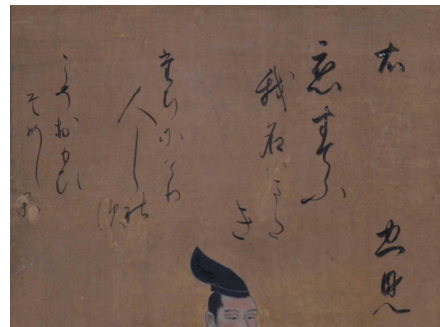 右 忠見
恋すてふ
我名はまた
き
たちにけり
人しれ
す
こそおもひ
そめしか